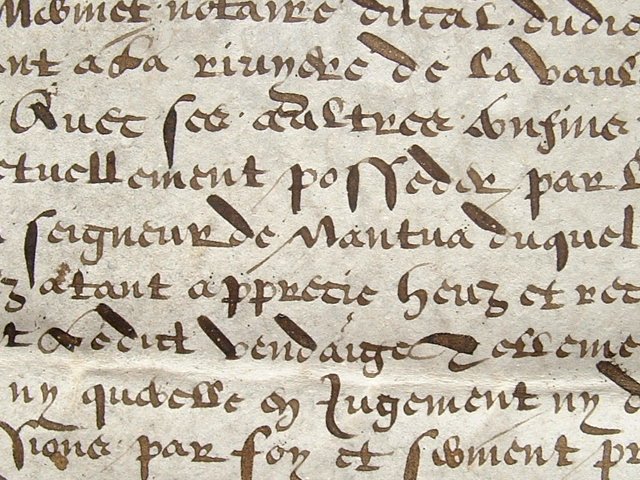 notaire ducal dudie
ant a la riuyere de la vaul
Auec ses aultres confins
etuellement posseder par l
seigneur de Nantua duquel
atant apprecie heuz et rec
vendaige Reelleme
ny querelle en Jugement ny d
sions par foy et serment pr